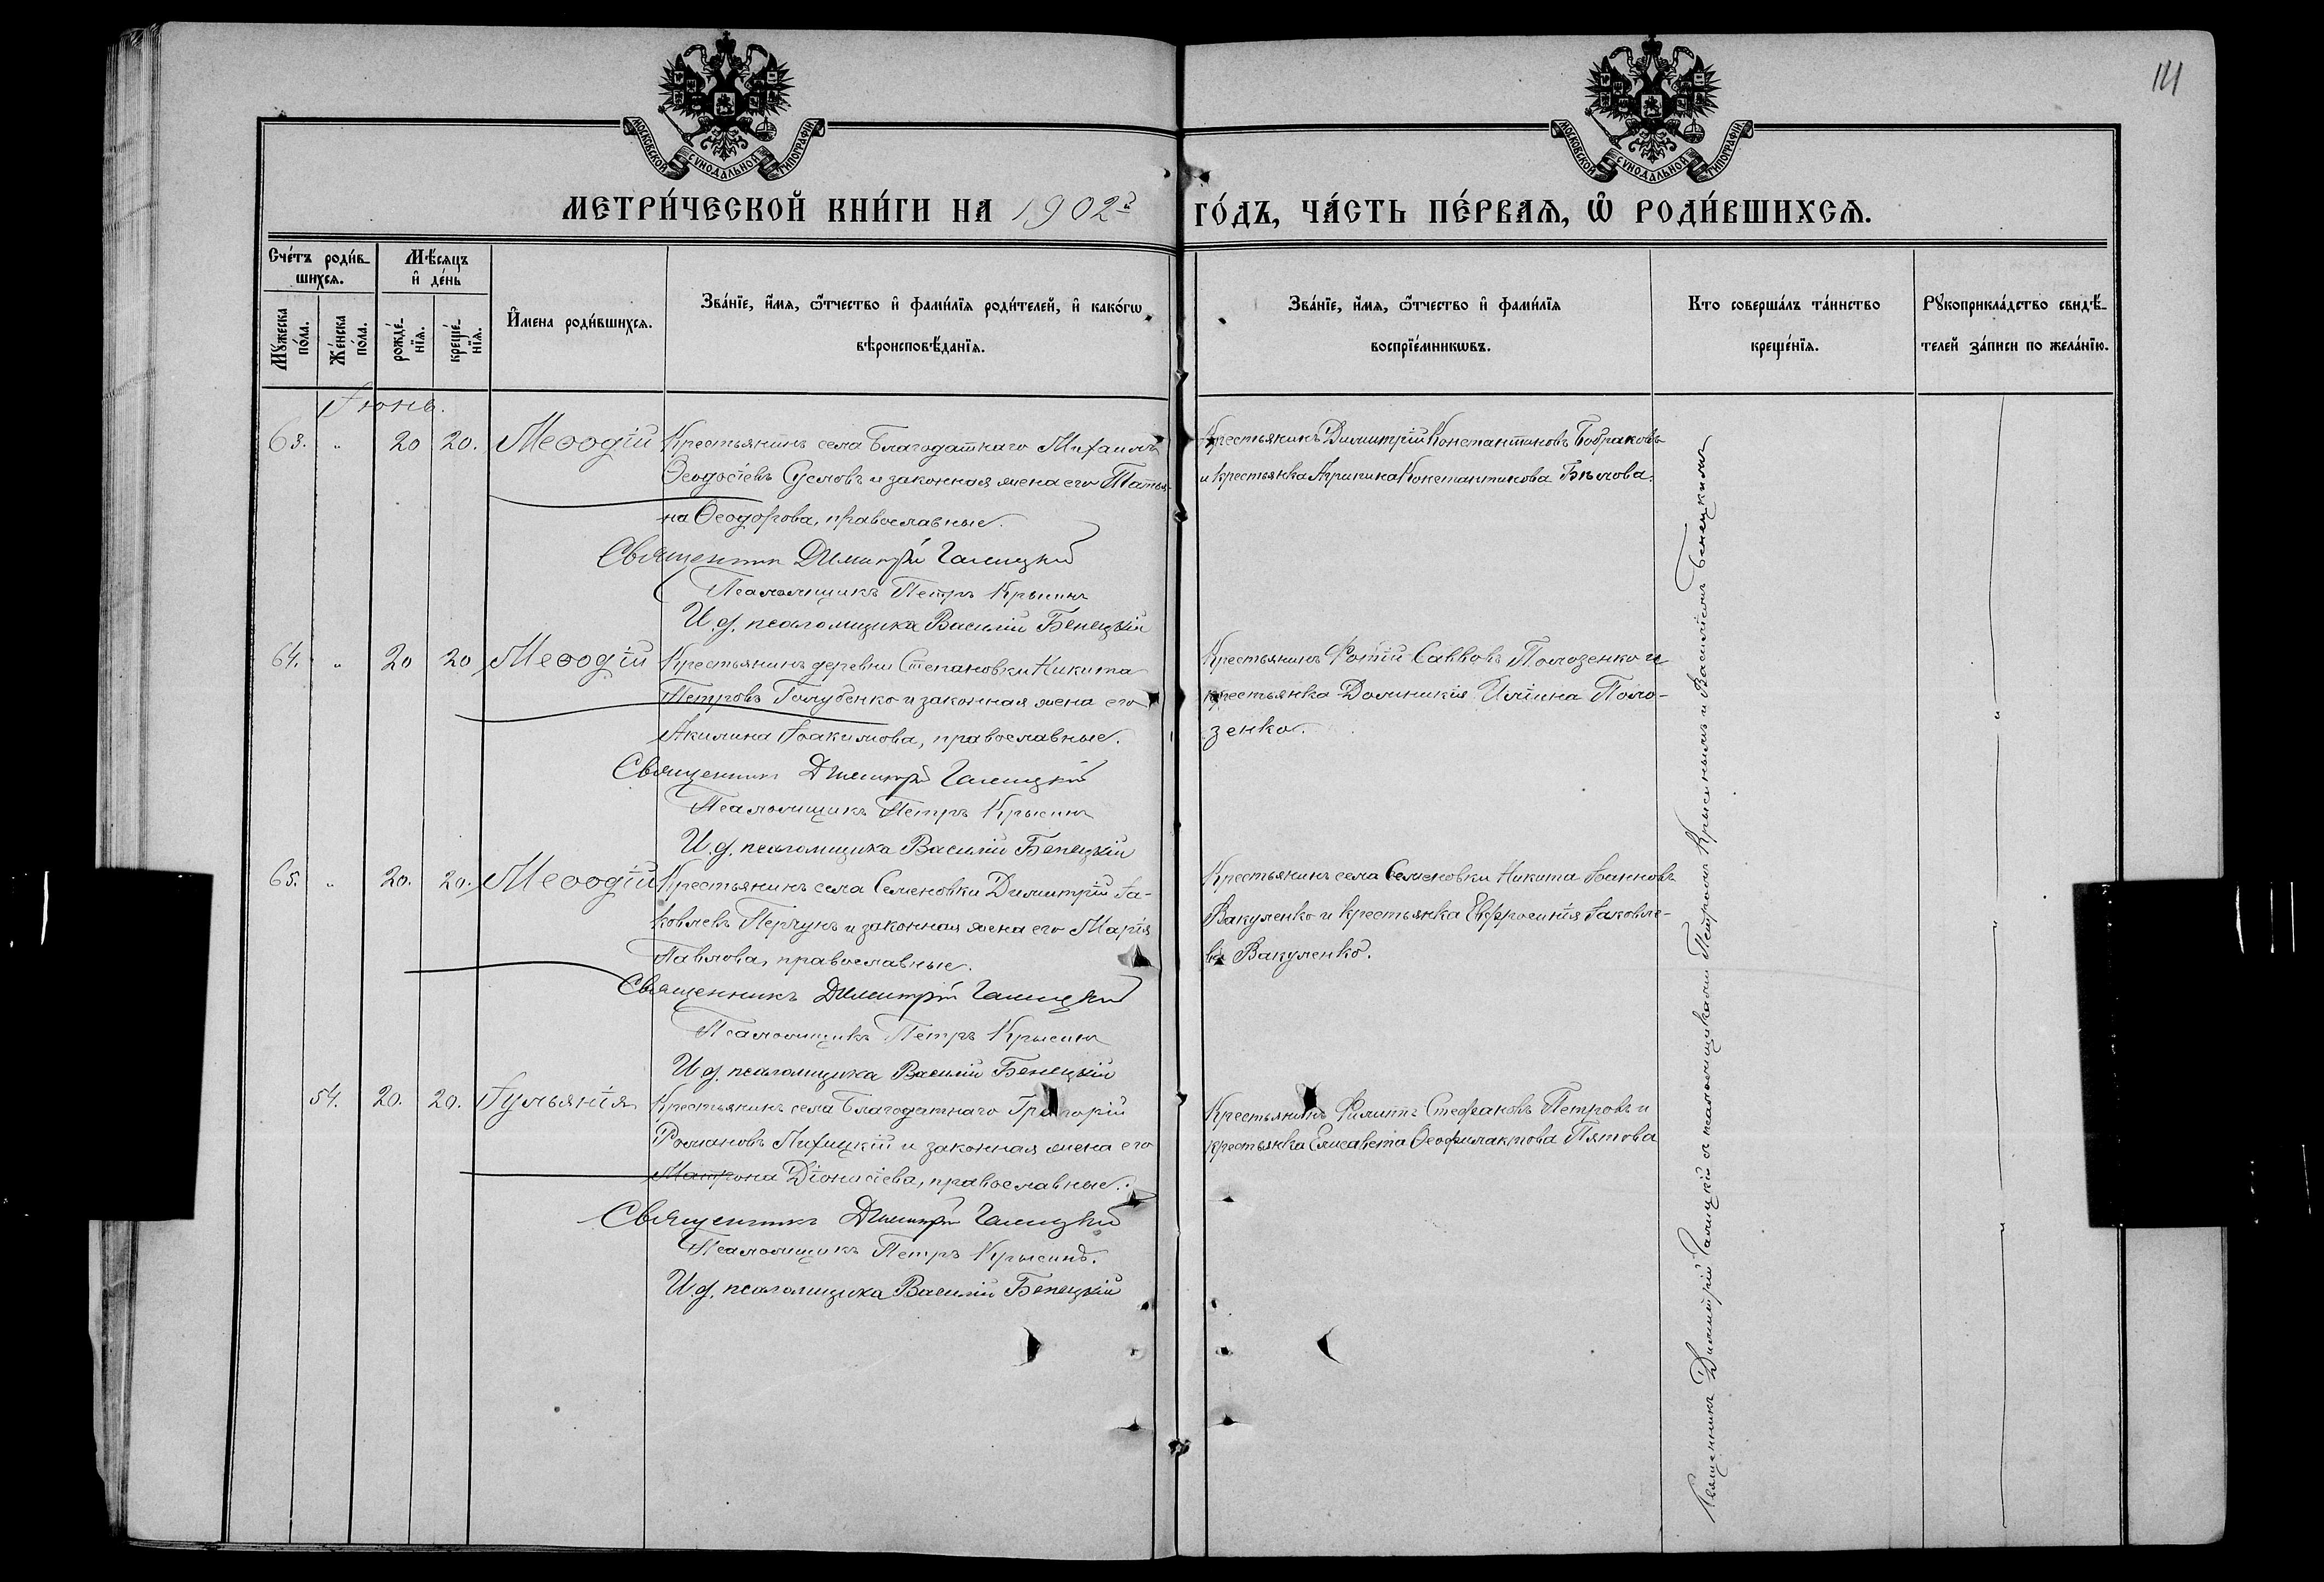 141
МОСКОВСКОЙ СѴНОДАЛЬНОЙ ТИПОГРАФІИ
МОСКОВСКОЙ СѴНОДАЛЬНОЙ ТИПОГРАФІИ
МЕТРИ́ЧЕСКОЙ КНИ́ГИ НА 1902й ГО́ДЪ, ЧА́СТЬ ПЕ́РВАѦ, Ѽ РОДИ́ВШИХСѦ.
Сче́тъ роди́в-
шихсѧ.
Мꙋ́жеска
по́ла.
Же́нска
по́ла.
Мѣ́сѧцъ
и҆ де́нь
рожде́-
нїѧ.
креще́-
нїѧ.
И҆́мена роди́вшихсѧ.
Зва́нїе, и҆́мѧ, ѻ҆́тчество и҆ фами́лїѧ роди́телей, и҆ како́гѡ
вѣроисповѣ́данїѧ.
Зва́нїе, и҆́мѧ, ѻ҆́тчество и҆ фами́лїѧ
воспрїе́мникѡвъ.
Кто соверша́лъ та́инство
креще́нїѧ.
Рꙋкоприкла́дство свидѣ́-
телей за́писи по жела́нїю.
Іюнь.
63. " 20 20. Меѳодій Крестьянинъ села Благодатнаго Михаилъ
Ѳеодосіевъ Сусловъ и законная жена его Татья-
на Ѳеодорова, православные.
Священникъ Димитрій Галицкій
Псаломщикъ Петръ Крысинъ
И.д. псаломщика Василій Бенецкій
Крестьянинъ Димитрій Константиновъ Бобраковъ
и крестьянка Агрипина Константинова Бѣлова.
64. " 20 20 Меѳодій Крестьянинъ деревни Степановки Никита
Петровъ Голубенко и законная жена его
Акилина Іоакимова, православные.
Священникъ Димитрій Галицкій
Псаломщикъ Петръ Крысинъ
И.д. псаломщика Василій Бенецкій
Крестьянинъ Фотій Савовъ Полозенко и
крестьянка Домникія Иліина Поло-
зенко.
65. " 20. 20. Меѳодій Крестьянинъ села Семеновки Димитрій Іа-
ковлевъ Перчунъ и законная жена его Марія
Павлова, православные.
Священникъ Димитрій Галицкій
Псаломщикъ Петръ Крысинъ
И.д. псаломщика Василій Бенецкій
Крестьянинъ села Семеновки Никита Іоанновъ
Вакуленко и крестьянка Евфросинія Іаковле-
ва Вакуленко.
54. 20. 20. Іульянія Крестьянинъ села Благодатнаго Григорій
Романовъ Лихицкій и законная жена его
Матрона Діонисіева, православные.
Священникъ Димитрій Галицкій
Псаломщикъ Петръ Крысинъ.
И.д. псаломщика Василій Бенецкій
Крестьянинъ Филиппъ Стефановъ Петровъ и
крестьянка Елисавета Ѳеофилактова Пятова
Священникъ Димитрій Галицкій съ псаломщиками Петромъ Крысинымъ и Василіемъ Бенецкимъ